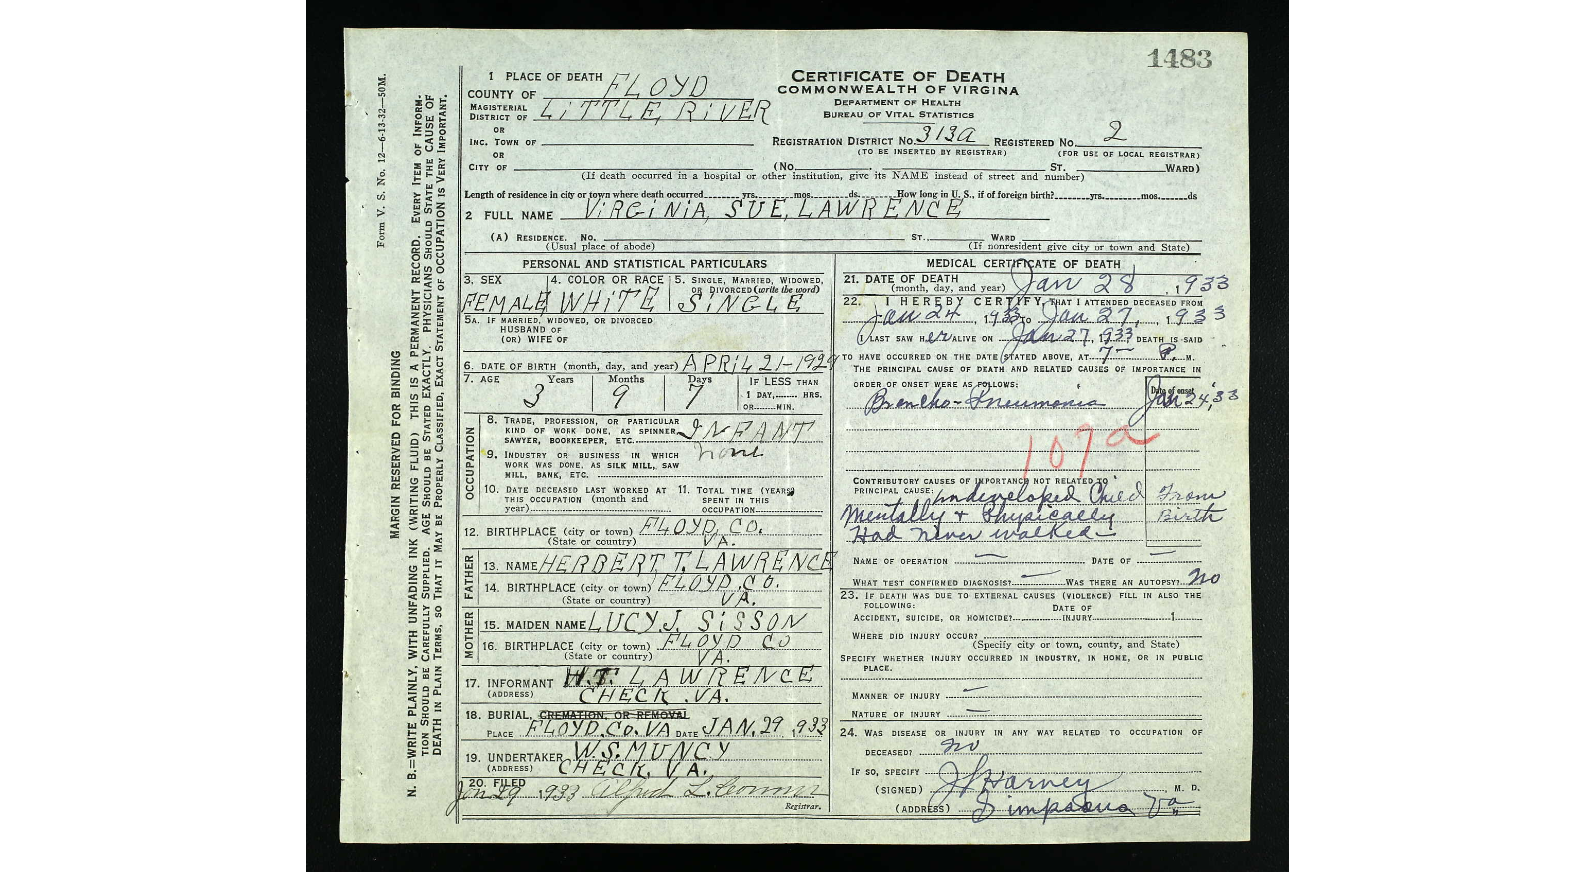 1483
1 PLACE OF DEATH
COUNTY OF FLOYD
MAGISTERIAL DISTRICT OF LITTLE RIVER
OR
INC. TOWN OF
OR
CITY OF
CERTIFICATE OF DEATH
COMMONWEALTH OF VIRGINA
DEPARTMENT OF HEALTH
BUREAU OF VITAL STATISTICS
REGISTRATION DISTRICT NO. 313a REGISTERED NO. 2
(TO BE INSERTED BY REGISTRAR) (FOR USE OF LOCAL REGISTRAR)
(No. ST. WARD)
(If death occurred in a hospital or other institution, give its NAME instead of street and number)
Length of residence in city or town where death occurred yrs. mos. ds. How long in U. S., if of foreign birth? yrs. mos. ds
2 FULL NAME VIRGINIA, SUE, LAWRENCE
(A) RESIDENCE. NO. ST. WARD
(Usual place of abode) (If nonresident give city or town and State)
PERSONAL AND STATISTICAL PARTICULARS
3. SEX 4. COLOR OR RACE 5. SINGLE, MARRIED, WIDOWED,
OR DIVORCED (write the word)
FEMALE WHITE SINGLE
5A. IF MARRIED, WIDOWED, OR DIVORCED
HUSBAND OF
(OR) WIFE OF
6. DATE OF BIRTH (month, day, and year) APRIL 21-1929
7. AGE Years Months Days IF LESS THAN
3 9 7 1 DAY, HRS.
OR MIN.
OCCUPATION
8. TRADE, PROFESSION, OR PARTICULAR
KIND OF WORK DONE, AS SPINNER,
SAWYER, BOOKKEEPER, ETC. INFANT
9. INDUSTRY OR BUSINESS IN WHICH
WORK WAS DONE, AS SILK MILL, SAW
MILL, BANK, ETC. none
10. DATE DECEASED LAST WORKED AT
THIS OCCUPATION (month and
year)
11. TOTAL TIME (YEARS)
SPENT IN THIS
OCCUPATION
12. BIRTHPLACE (city or town) FLOYD, CO.
(State or country) VA.
FATHER
13. NAME HERBERT. T. LAWRENCE
14. BIRTHPLACE (city or town) FLOYD. CO.
(State or country) VA.
MOTHER
15. MAIDEN NAME LUCY. J. SISSON
16. BIRTHPLACE (city or town) FLOYD CO
(State or country) VA.
17. INFORMANT H.T. LAWRENCE
(ADDRESS) CHECK. VA.
18. BURIAL, CREMATION, OR REMOVAL
PLACE FLOYD. CO. VA DATE JAN. 29 1933
19. UNDERTAKER W. S. MUNCY
(ADDRESS) CHECK, VA.
20. FILED
Jan 29 1933 Alfred L.
Registrar.
MEDICAL CERTIFICATE OF DEATH
21. DATE OF DEATH
(month, day, and year) Jan 28, 1933
22. I HEREBY CERTIFY, THAT I ATTENDED DECEASED FROM
Jan 24, 1933 TO Jan 27, 1933
I LAST SAW HER ALIVE ON Jan 27, 1933 DEATH IS SAID
TO HAVE OCCURRED ON THE DATE STATED ABOVE, AT 7- P. M.
THE PRINCIPAL CAUSE OF DEATH AND RELATED CAUSES OF IMPORTANCE IN
ORDER OF ONSET WERE AS FOLLOWS: Date of onset
Broncho-Pneumonia Jan 24, 33
107a
CONTRIBUTORY CAUSES OF IMPORTANCE NOT RELATED TO
PRINCIPAL CAUSE: undeveloped Child From
Mentally + Physically Birth
Had never walked-
NAME OF OPERATION DATE OF
WHAT TEST CONFIRMED DIAGNOSIS? WAS THERE AN AUTOPSY? No
23. IF DEATH WAS DUE TO EXTERNAL CAUSES (VIOLENCE) FILL IN ALSO THE
FOLLOWING: DATE OF
ACCIDENT, SUICIDE, OR HOMICIDE? INJURY 1
WHERE DID INJURY OCCUR?
(Specify city or town, county, and State)
SPECIFY WHETHER INJURY OCCURRED IN INDUSTRY, IN HOME, OR IN PUBLIC
PLACE.
MANNER OF INJURY
NATURE OF INJURY
24. WAS DISEASE OR INJURY IN ANY WAY RELATED TO OCCUPATION OF
DECEASED? no
IF SO, SPECIFY
(SIGNED) Harvey M. D.
(ADDRESS) Simpsons Va
Form V. S. No. 12—6-13-32—50M.
MARGIN RESERVED FOR BINDING
N. B.=WRITE PLAINLY, WITH UNFADING INK (WRITING FLUID) THIS IS A PERMANENT RECORD. EVERY ITEM OF INFORM-
TION SHOULD BE CAREFULLY SUPPLIED. AGE SHOULD BE STATED EXACTLY. PHYSICIANS SHOULD STATE THE CAUSE OF
DEATH IN PLAIN TERMS, SO THAT IT MAY BE PROPERLY CLASSIFIED. EXACT STATEMENT OF OCCUPATION IS VERY IMPORTANT.